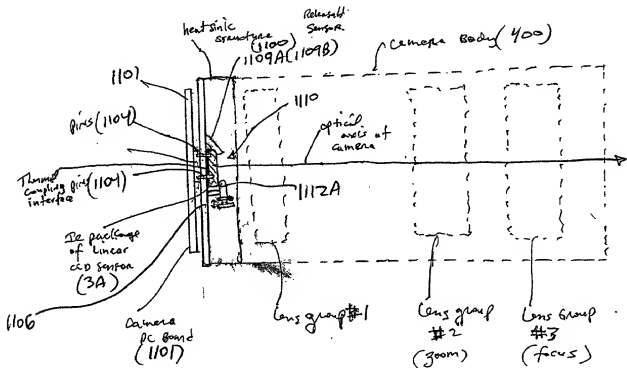 heatsinc
structure
(1100)
Releasable
Sensor
1109A (1109B)
camera Body (400)
1101
pins (1104)
1110
optical
axis of
camera
Thermal
coupling
interface
pins (1104)
1112A
IC package
of Linear
CCD sensor
(3A)
1106
Camera
PC Board
(1101)
Lens group #1
Lens group
#2
(zoom)
Lens Group
#3
(focus)